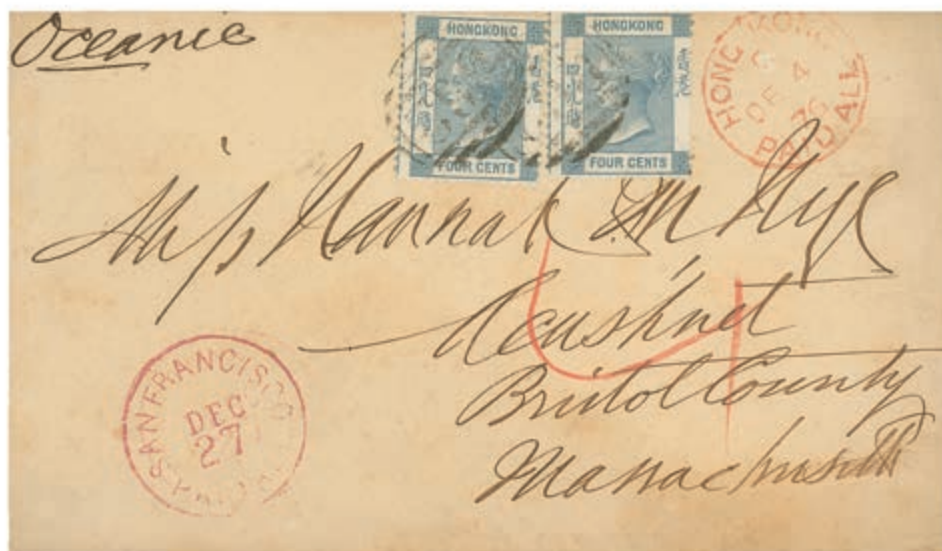 Oceanic
HONGKONG
FOUR CENTS
HONGKONG
FOUR CENTS
HONG KONG
DE 4
76
PAID ALL
Miss Hannah M Nye
4
Acushnet
Bristol County
Massachusetts
SAN FRANCISCO
DEC
27
PAID ALL